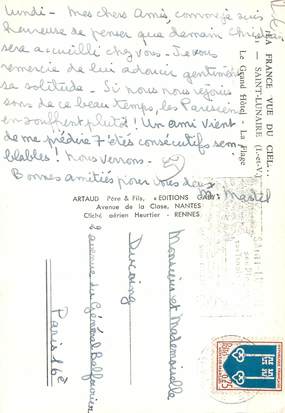 Lundi - Mes chers Amis, comme je suis
heureuse de penser que demain Christian
sera accueilli chez vous - Je vous
remercie de lui adoucir gentiment
sa solitude - Si nous nous réjouis
sons de ce beau temps, les Parisiens
en souffrent plutôt! Un ami vient
de me prédire 7 étés consécutifs sem
blables! Nous verrons -
Bonnes amitiés pour vous deux
LA FRANCE VUE DU CIEL...
SAINT-LUNAIRE (I.-et-V.)
Le Grand Hôtel - La Plage
ARTAUD Père & Fils, "EDITIONS GABY"
Avenue de la Close, NANTES
Cliché aérien Heurtier - RENNES
Monsieur et Mademoiselle
Ducoing
2 avenue du Général Balfourier
Paris 16e
0,75